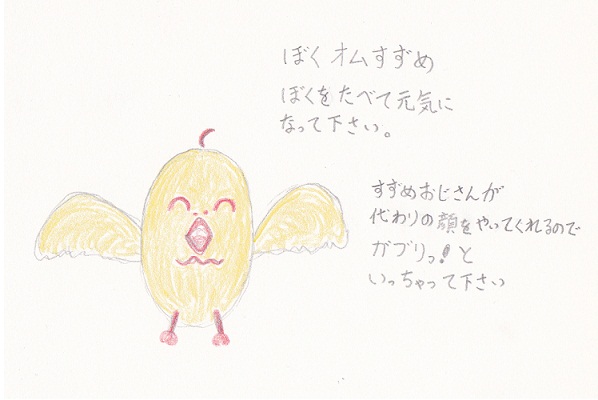 ぼく オムすずめ
ぼくをたべて元気に
なって下さい。
すずめおじさんが
代わりの顔をやってくれるので
ガブリっ!と
いっちゃって下さい